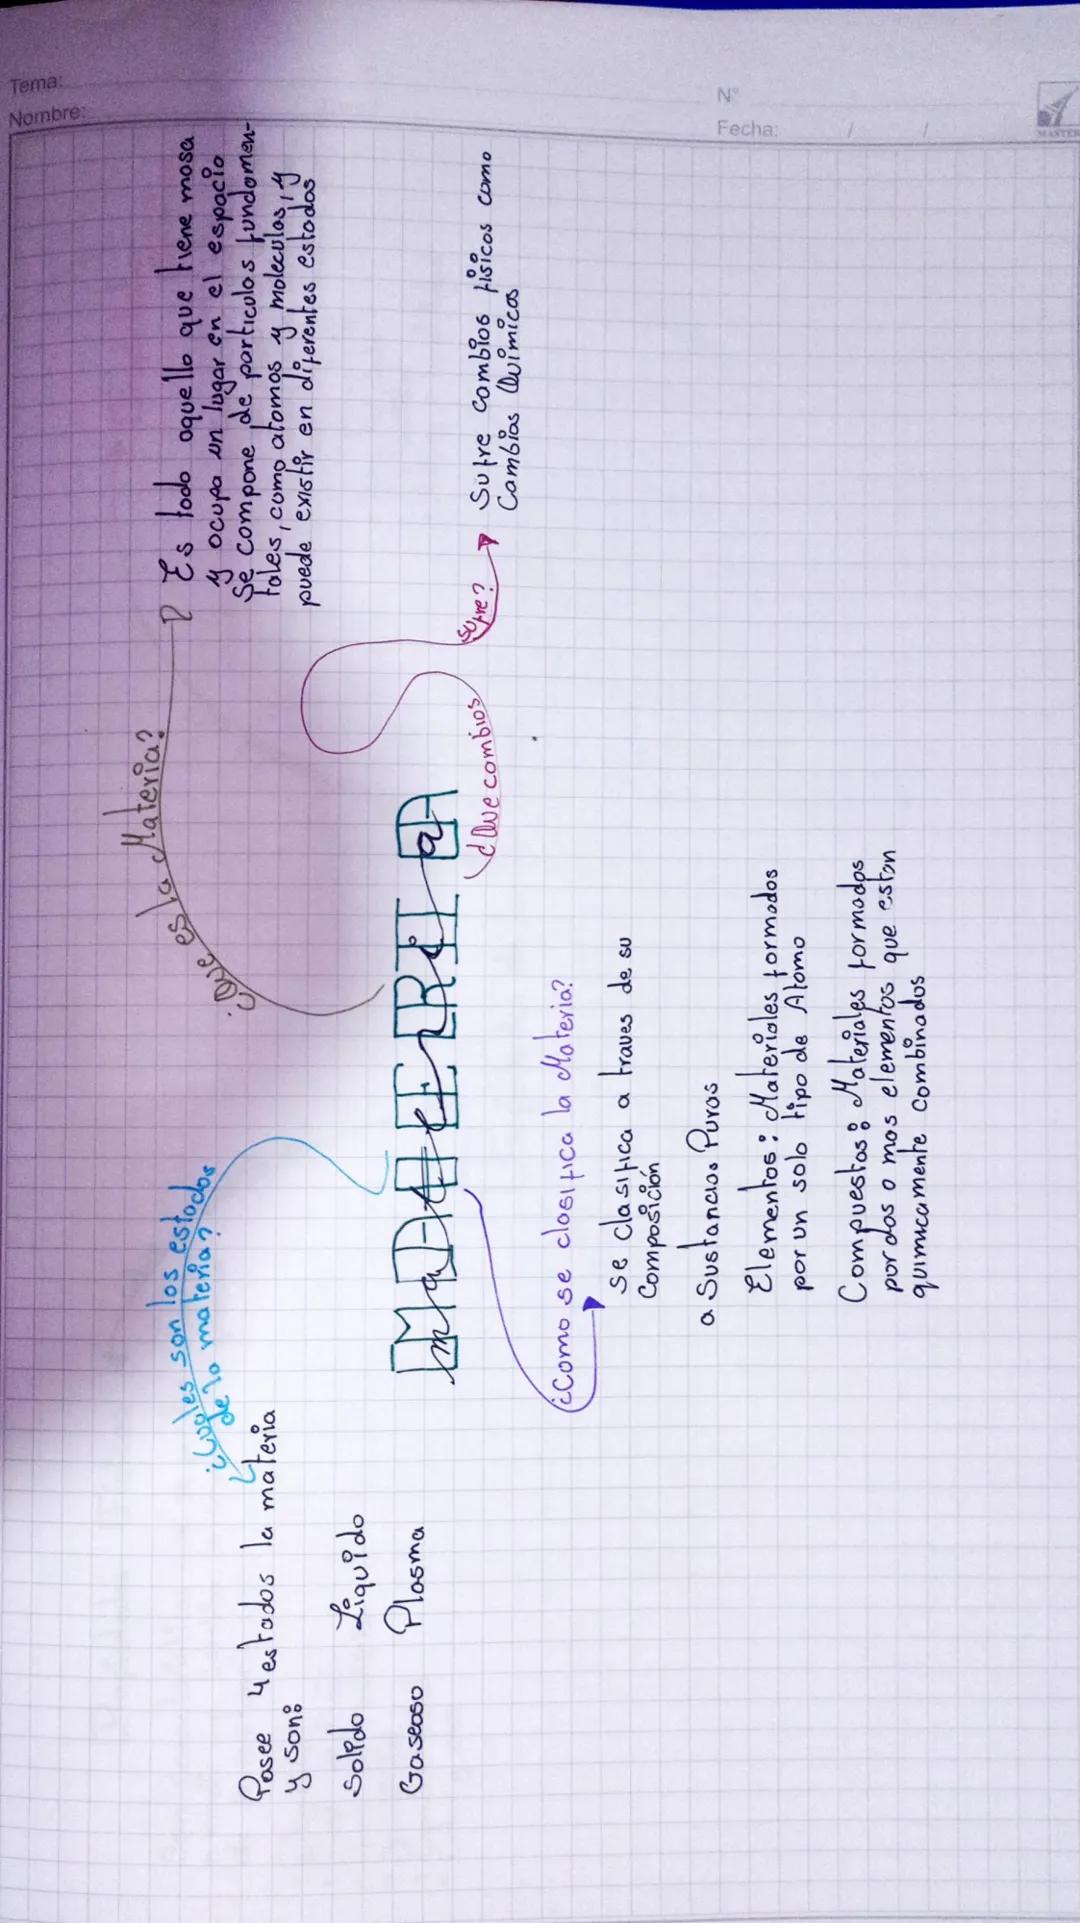 Tema:
Nombre:
N°
Fecha: / /
MASTER
¿Que es la Materia?
Es todo aquello que tiene masa
y ocupa un lugar en el espacio
Se compone de particulas fundamen-
tales, como atomos y moleculas, y
puede existir en diferentes estados
¿Cuales son los estados
de la materia?
Posee 4 estados la materia
y son:
Solido Liquido
Gaseoso Plasma
MATERIA
materia
¿Que cambios
sufre?
Sufre cambios fisicos como
Cambios Quimicos
¿Como se clasifica la Materia?
se clasifica a traves de su
Composición
a Sustancias Puras
Elementos: Materiales formados
por un solo tipo de Atomo
Compuestos: Materiales formados
por dos o mas elementos que estan
quimicamente combinados